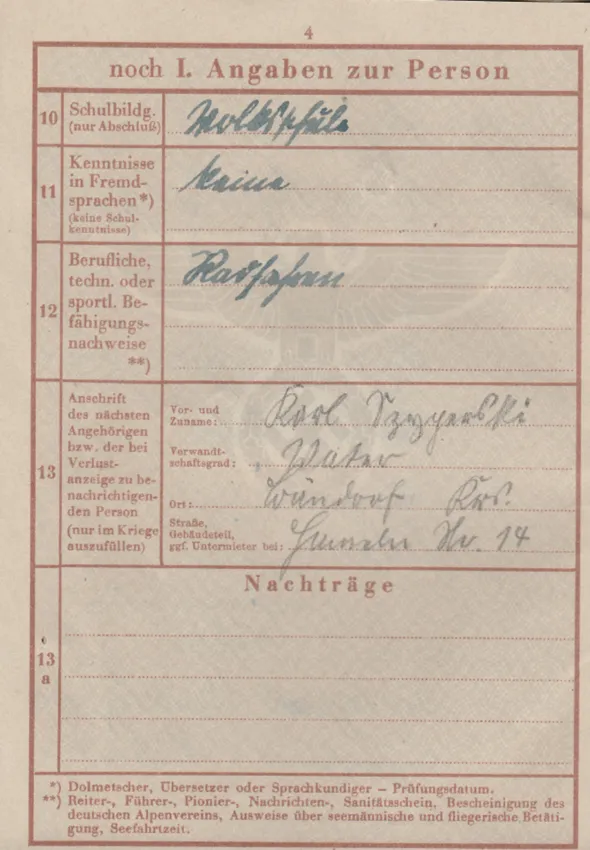 4
noch I. Angaben zur Person
10 Schulbildg. Volksschule
(nur Abschluß)
Kenntnisse
11 in Fremd- keine
sprachen *)
(keine Schul-
kenntnisse)
Berufliche, Radfahren
techn. oder
12 sportl. Be-
fähigungs-
nachweise
**)
13 Anschrift
des nächsten
Angehörigen
bzw. der bei
Verlust-
anzeige zu be-
nachrichtigen-
den Person
(nur im Kriege
auszufüllen)
Vor- und
Zuname: Karl Szyperski
Verwandt-
schaftsgrad: Vater
Ort: Krs.
Straße,
Gebäudeteil,
ggf. Untermieter bei: Hameln Nr. 14
Nachträge
13
a
*) Dolmetscher, Übersetzer oder Sprachkundiger – Prüfungsdatum.
**) Reiter-, Führer-, Pionier-, Nachrichten-, Sanitätsschein, Bescheinigung des
deutschen Alpenvereins, Ausweise über seemännische und fliegerische Betäti-
gung, Seefahrtzeit.